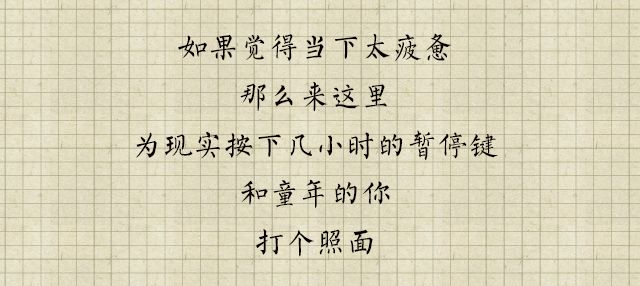 如果觉得当下太疲惫
那么来这里
为现实按下几小时的暂停键
和童年的你
打个照面